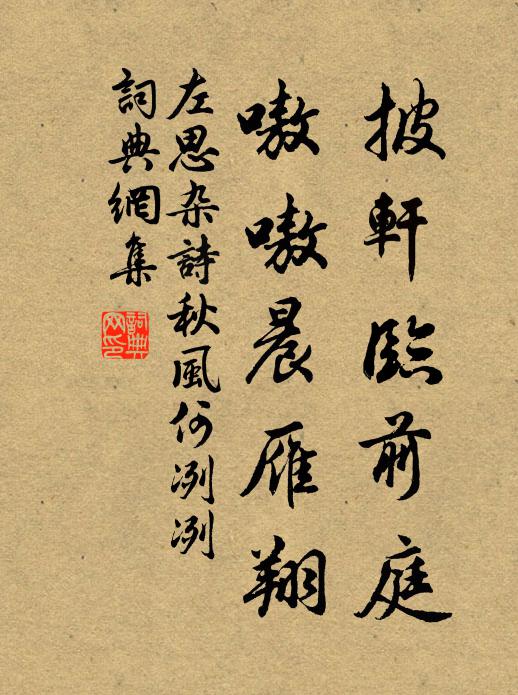 披軒臨前庭
嗷嗷晨雁翔
左思杂詩秋風何冽冽
詞典網集
詞典網印